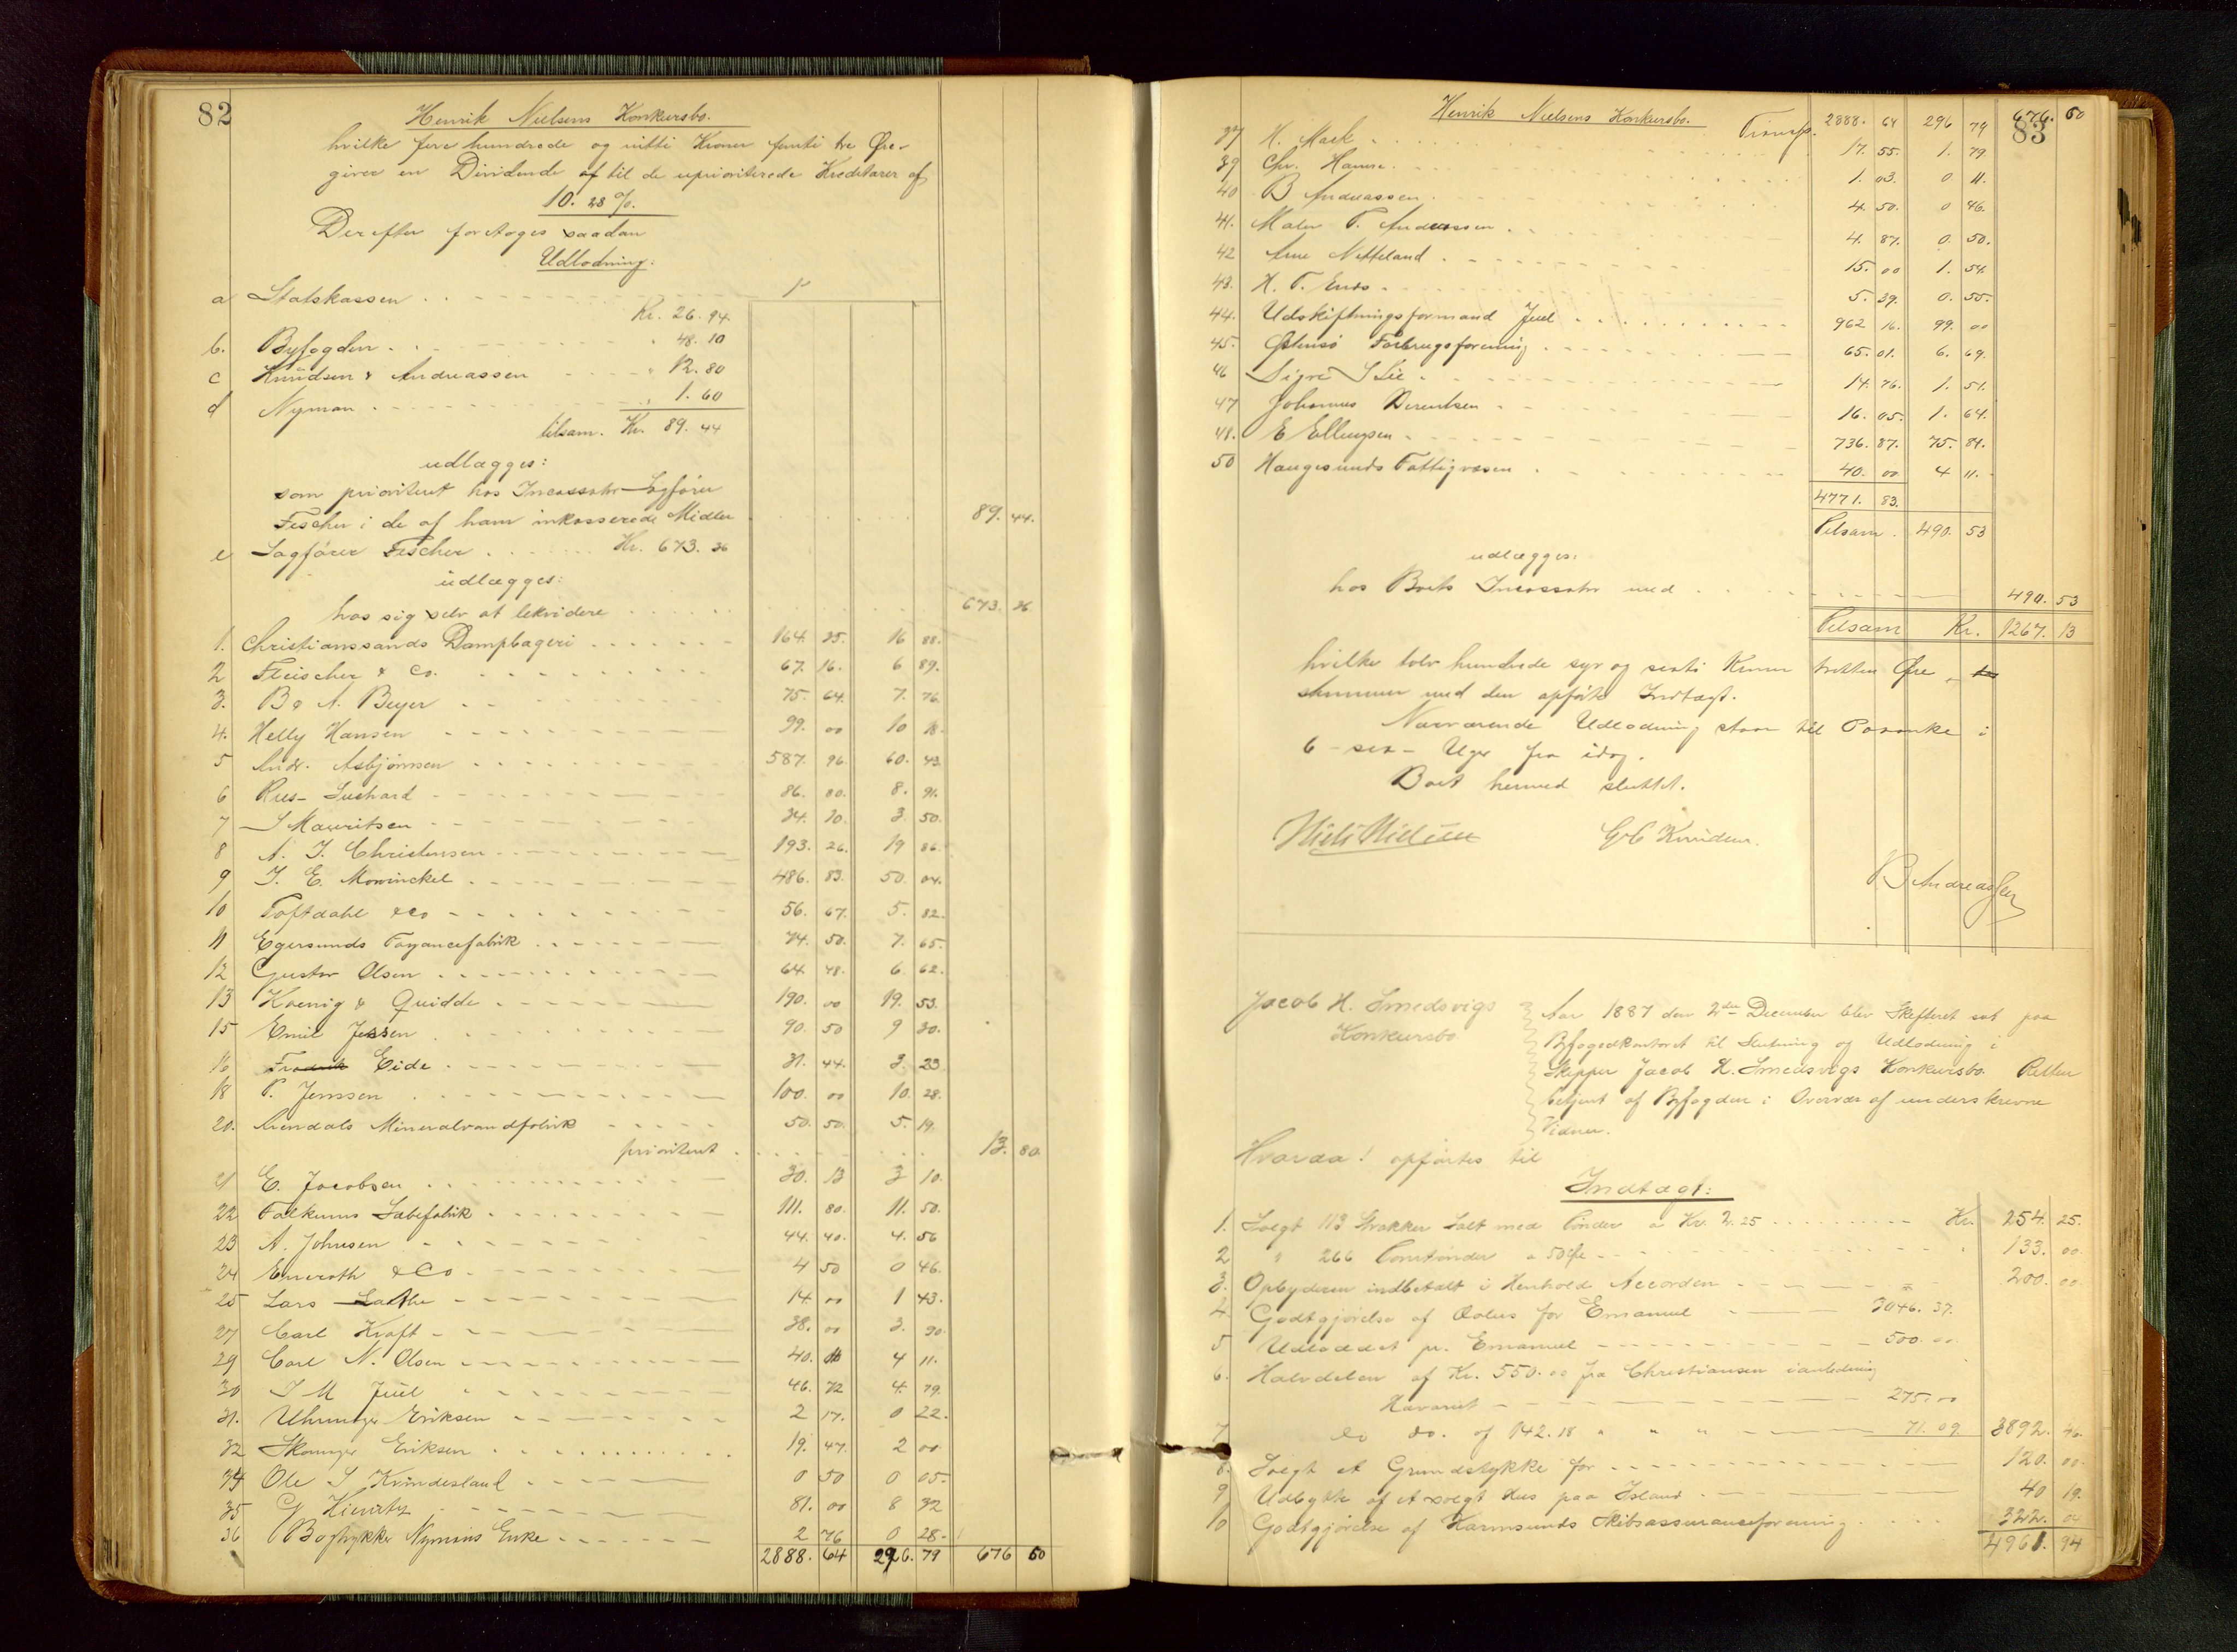 82
Henrik Nielsens Konkursbo.
hvilke fire hundrede og nitti Kroner femti tre Øre
giver en Dividende af til de uprioriterede Kreditorer af
10. 28 %.
Derefter foretoges saadan
Udlodning:
a Statskassen . . Kr. 26. 94.
b. Byfogden . . " 48. 10
c Knudsen & Andreassen " 12. 80
d Nyman . " 1. 60
tilsam. Kr. 89. 44
udlægges:
som prioriteret hos Incassator Sagfører
Fischer i de af ham inkasserede Midler 89. 44.
e Sagfører Fischer . . . Kr. 673. 36
udlægges:
hos sig selv at lekvidere 673. 36
1. Christianssands Dampbageri 164. 25. 16 88.
2 Fleischer & Co. 67. 16. 6 89.
3. B & A. Beyer 75. 64. 7. 76.
4. Helly Hansen 99. 00 10 18.
5 Andr. Asbjørnsen 587. 96 60. 43
6 Ries- Suchard 86. 80. 8. 91.
7 S Mauritsen 34. 20. 3. 50.
8 A. J. Christensen 193. 26. 19 86.
9 J. E. Mowinckel 486. 83. 50. 04.
10 Toftdahl & Co 56. 67. 5. 82.
11 Egersunds Fayancefabrik 74. 50. 7. 65.
12 Gustav Olsen 64 48. 6. 62.
13 Koenig & Quidde 190. 00 19. 53.
15 Emil Jenssen 90. 50 9 30.
16 Eide 31. 44. 3. 23
18 P. Jenssen 100. 00 10. 28.
20. Arendals Mineralvandfabrik 50. 50. 5. 19.
prioriteret 13. 80.
21 E. Jacobsen 30. 13 3 10.
22 Falkums Sæbefabrik 111. 80. 11. 50.
23 A. Johnsen 44. 40. 4. 56
24 Eneroth & Co 4 50 0 46.
25 Lars 14. 00 1 43.
27 Carl Kraft 38. 00 3. 90.
29 Carl N. Olsen 40. 4 11.
30 J M Juul 46. 72 4. 79.
31. Uhrmager Eriksen 2 17. 0 22.
32 Skomager Eriksen 19. 47. 2 00
34 Ole S Kvindesland 0 50 0 05
35 G 81. 00 8 32
36 Bogtrykker Nymans Enke 2 76 0 28
2888. 64 296. 79 676 60
Henrik Nielsens Konkursbo. Transp. 2888. 64 296 79 676. 60
83
37 H. Mack 17. 55. 1. 79.
39 Chr. Hansen 1. 03. 0 11.
40 B Andreassen 4. 50. 0 46.
41. Maler T. Andreassen 4. 87. 0. 50.
42 Arne Netteland 15. 00 1. 54.
43. H. T. 5. 39. 0. 55.
44. Udskiftningsformand Juel 962 16. 99. 00
45. Østensø Forbrugsforening 65. 01. 6. 69.
46 Sigre S Lie 14. 76. 1. 51.
47 Johannes Berentsen 16. 05. 1. 64.
48. E Ellingsen 736. 87. 75. 84.
50 Haugesunds Fattigvæsen 40. 00 4 11.
4771. 83.
Tilsam. 490. 53
udlægges:
hos Boets Incassator med 490. 53
Tilsam Kr. 1267. 13
hvilke tolv hundrede syv og sexti Kroner tretten Øre
stemmer med den opførte Indtægt.
Nærværende Udlodning staar til Paaanke i
6 - sex - Uger fra idag.
Boet hermed sluttet.
Niels Nielsen G C Knudsen.
B Andreassen
Jacob H. Smedsvigs
Konkursbo
Aar 1887 den 2den December blev Skifteret sat paa
Byfogedkontoret til Slutning og Udlodning i
Skipper Jacob H. Smedsvigs Konkursbo. Retten
betjent af Byfogden i Overvær af underskrevne
Vidner.
Hvorda! opførtes til
Indtægt:
1. Solgt 113 Strakker Salt med Tønder a Kr. 2. 25 Kr. 254. 25.
2 " 266 Tomtønder a 50 Øre 133. 00
3. Opbyderen indbetalt i Henhold Accorden 200. 00.
4. Godtgjørelse af Æolus for Emanuel 3046. 37.
5 Udloddet pr. Emanuel 500. 00
6. Halvdelen af Kr. 550. 00 fra Christiansen i anledning
Havariet 275. 00
7 do do. af 142. 18 " " " 71. 09 3892. 46.
8. Solgt et Grundstykke for 120. 00
9 Udbytte af et solgt Hus paa Island 40 19.
10 Godtgjørelse af Karmsunds Skibsassuranceforening 322. 04
4961. 94